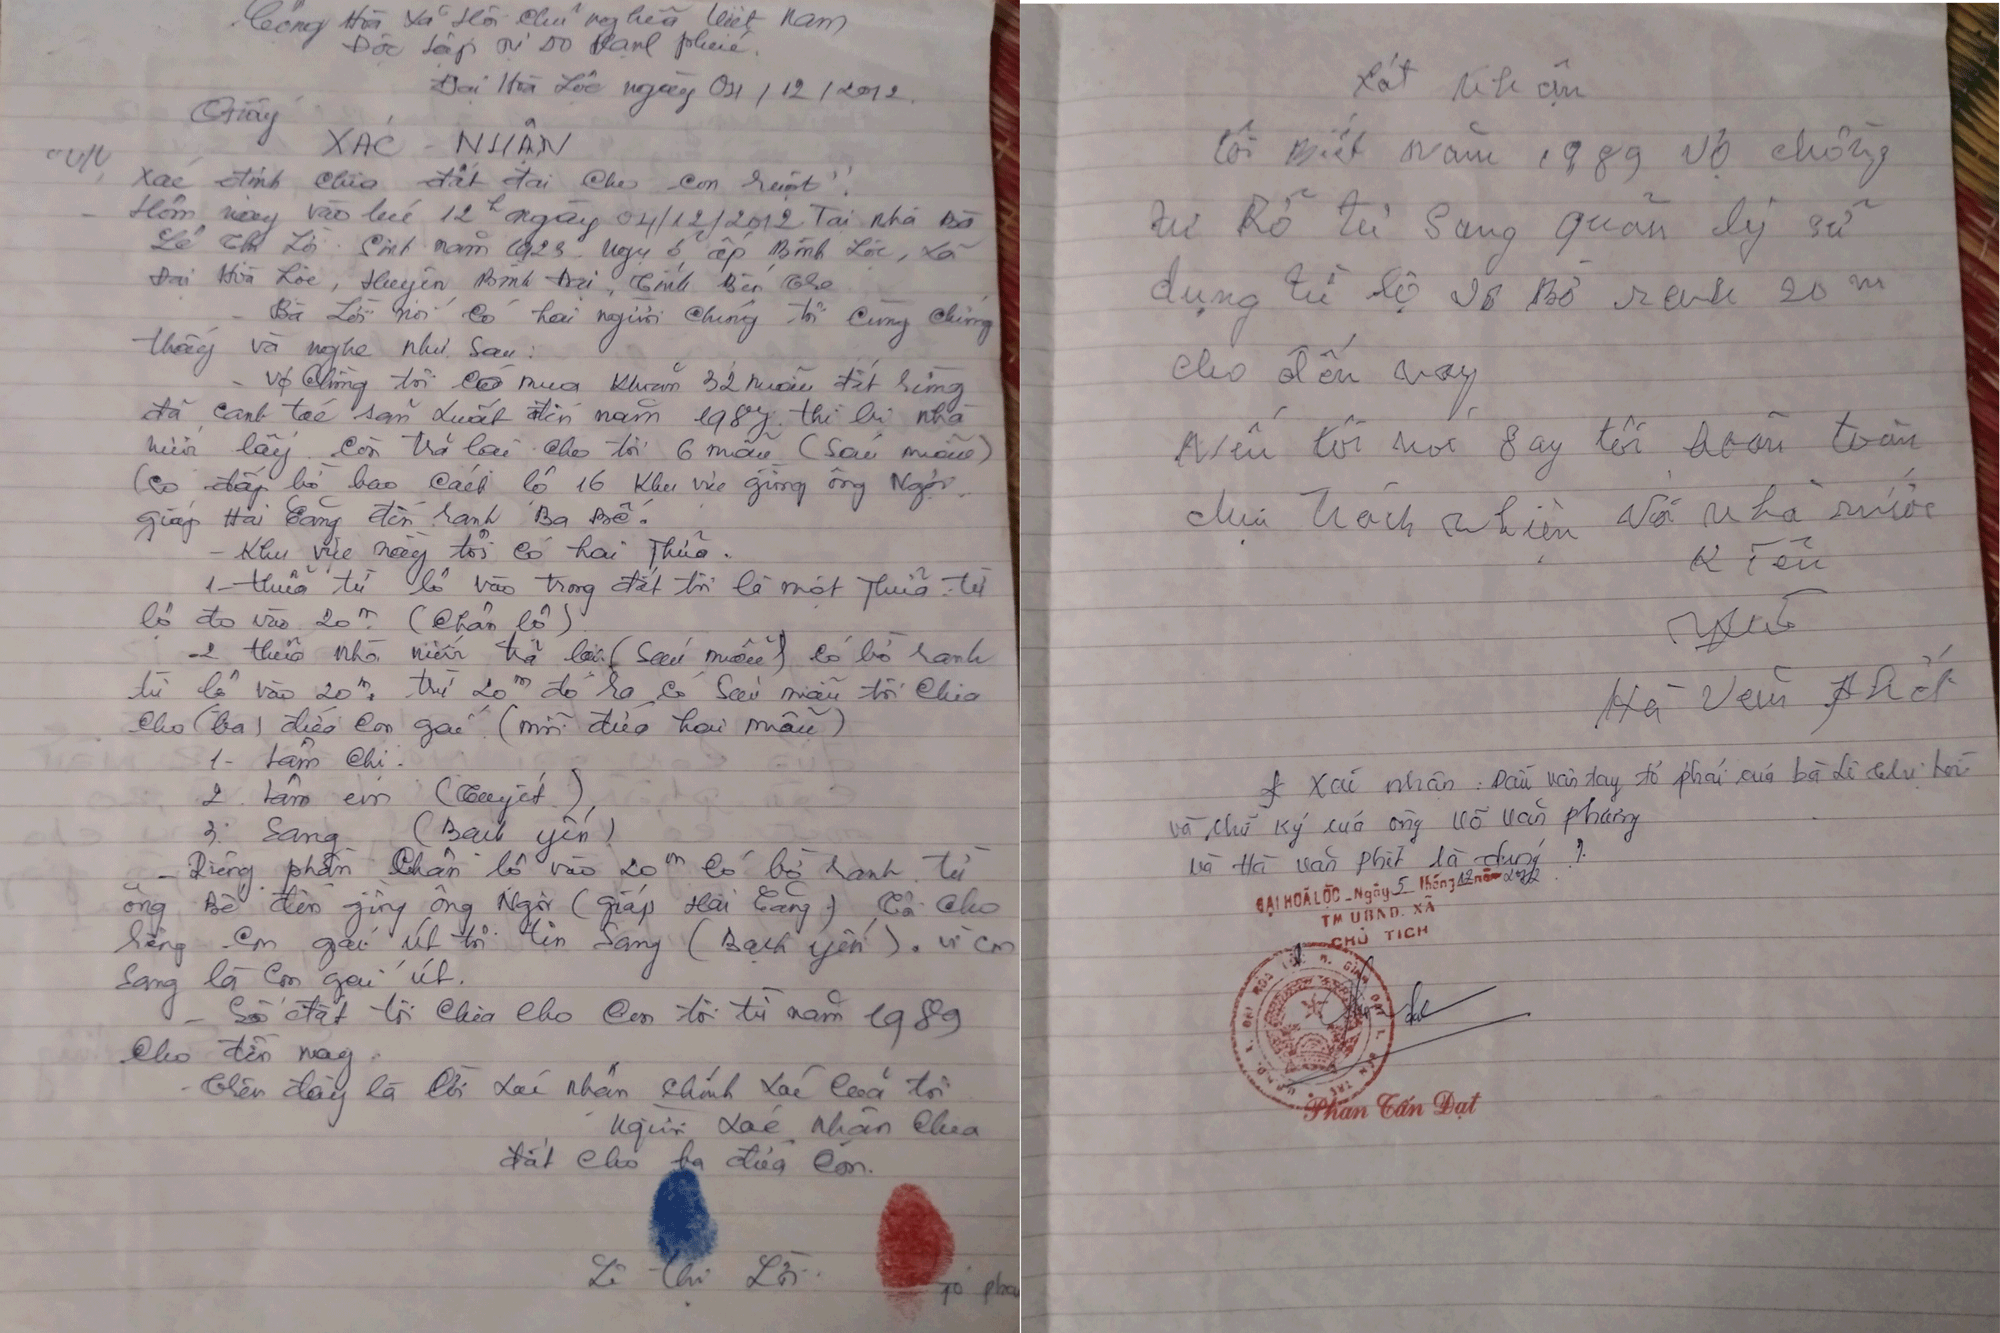 Cộng Hòa Xã Hội Chủ nghĩa Việt Nam
Độc lập Tự do Hạnh phúc.
Đại Hòa Lộc ngày 04/12/2012.
Giấy
XÁC - NHẬN
"V/V,
Xác định chia đất đai cho con ruột".
- Hôm nay vào lúc 12h ngày 04/12/2012 Tại nhà Bà
Lê Thị Lời. Sinh năm 1923. Ngụ ở ấp Bình Lộc, xã
Đại Hòa Lộc, Huyện Bình Đại, Tỉnh Bến Tre
- Bà Lời nói có hai người chúng tôi cùng chứng
thấy và nghe như sau:
- Vợ Chồng tôi có mua khoản 32 mẫu đất rừng
đã canh tác sản xuất đến năm 1987. thì bị nhà
nước lấy. Còn trả lại cho tôi 6 mẫu (sáu mẫu)
(có đắp bờ bao cách lộ 16 khu vực giồng ông Ngời.
giáp Hai Tăng đến ranh Ba Bê.
- Khu vực này tôi có hai Thửa.
1- thửa từ lộ vào trong đất tôi là một Thửa. từ
lộ đo vào 20m (Chân lộ)
-2 thửa nhà nước trả lại (sáu mẫu) có bờ ranh
từ lộ vào 20m, trừ 20m đó ra có sáu mẫu tôi chia
cho (ba) đứa con gái. (mỗi đứa hai mẫu)
1- Lầm Chị.
2. Lầm em (Tuyết),
3. Sang (Bạch Yến)
- Riêng phần Chân lộ vào 20m có bờ ranh từ
ông Bê đến giồng ông Ngời (giáp Hai Tăng) tôi cho
riêng con gái út tôi tên Sang (Bạch Yến). vì con
Sang là con gái út.
- Số đất tôi chia cho con tôi từ năm 1989
cho đến nay.
- Trên đây là lời xác nhận chính xác của tôi
Người xác nhận chia
đất cho ba đứa con.
Lê Thị Lời.
Xát Nhận
tôi biết năm 1989 vợ chồng
tư Sang quản lý sữ
dụng từ lộ vô Bờ ranh 20 m
cho đến nay
Nếu tôi nói Say tôi hoàn toàn
chụi trách nhiện với nhà nước
K Tên
Hà Văn Phết
* Xác nhận: Dấu vân tay tỏ phải của bà Lê Thị Lời
và chữ ký của ông Võ Văn Phương
và Hà Văn Phết là đúng.
ĐẠI HOÀ LỘC - Ngày 5 Tháng 12 năm 2012
TM UBND. XÃ
CHỦ TỊCH
Phan Tấn Đạt